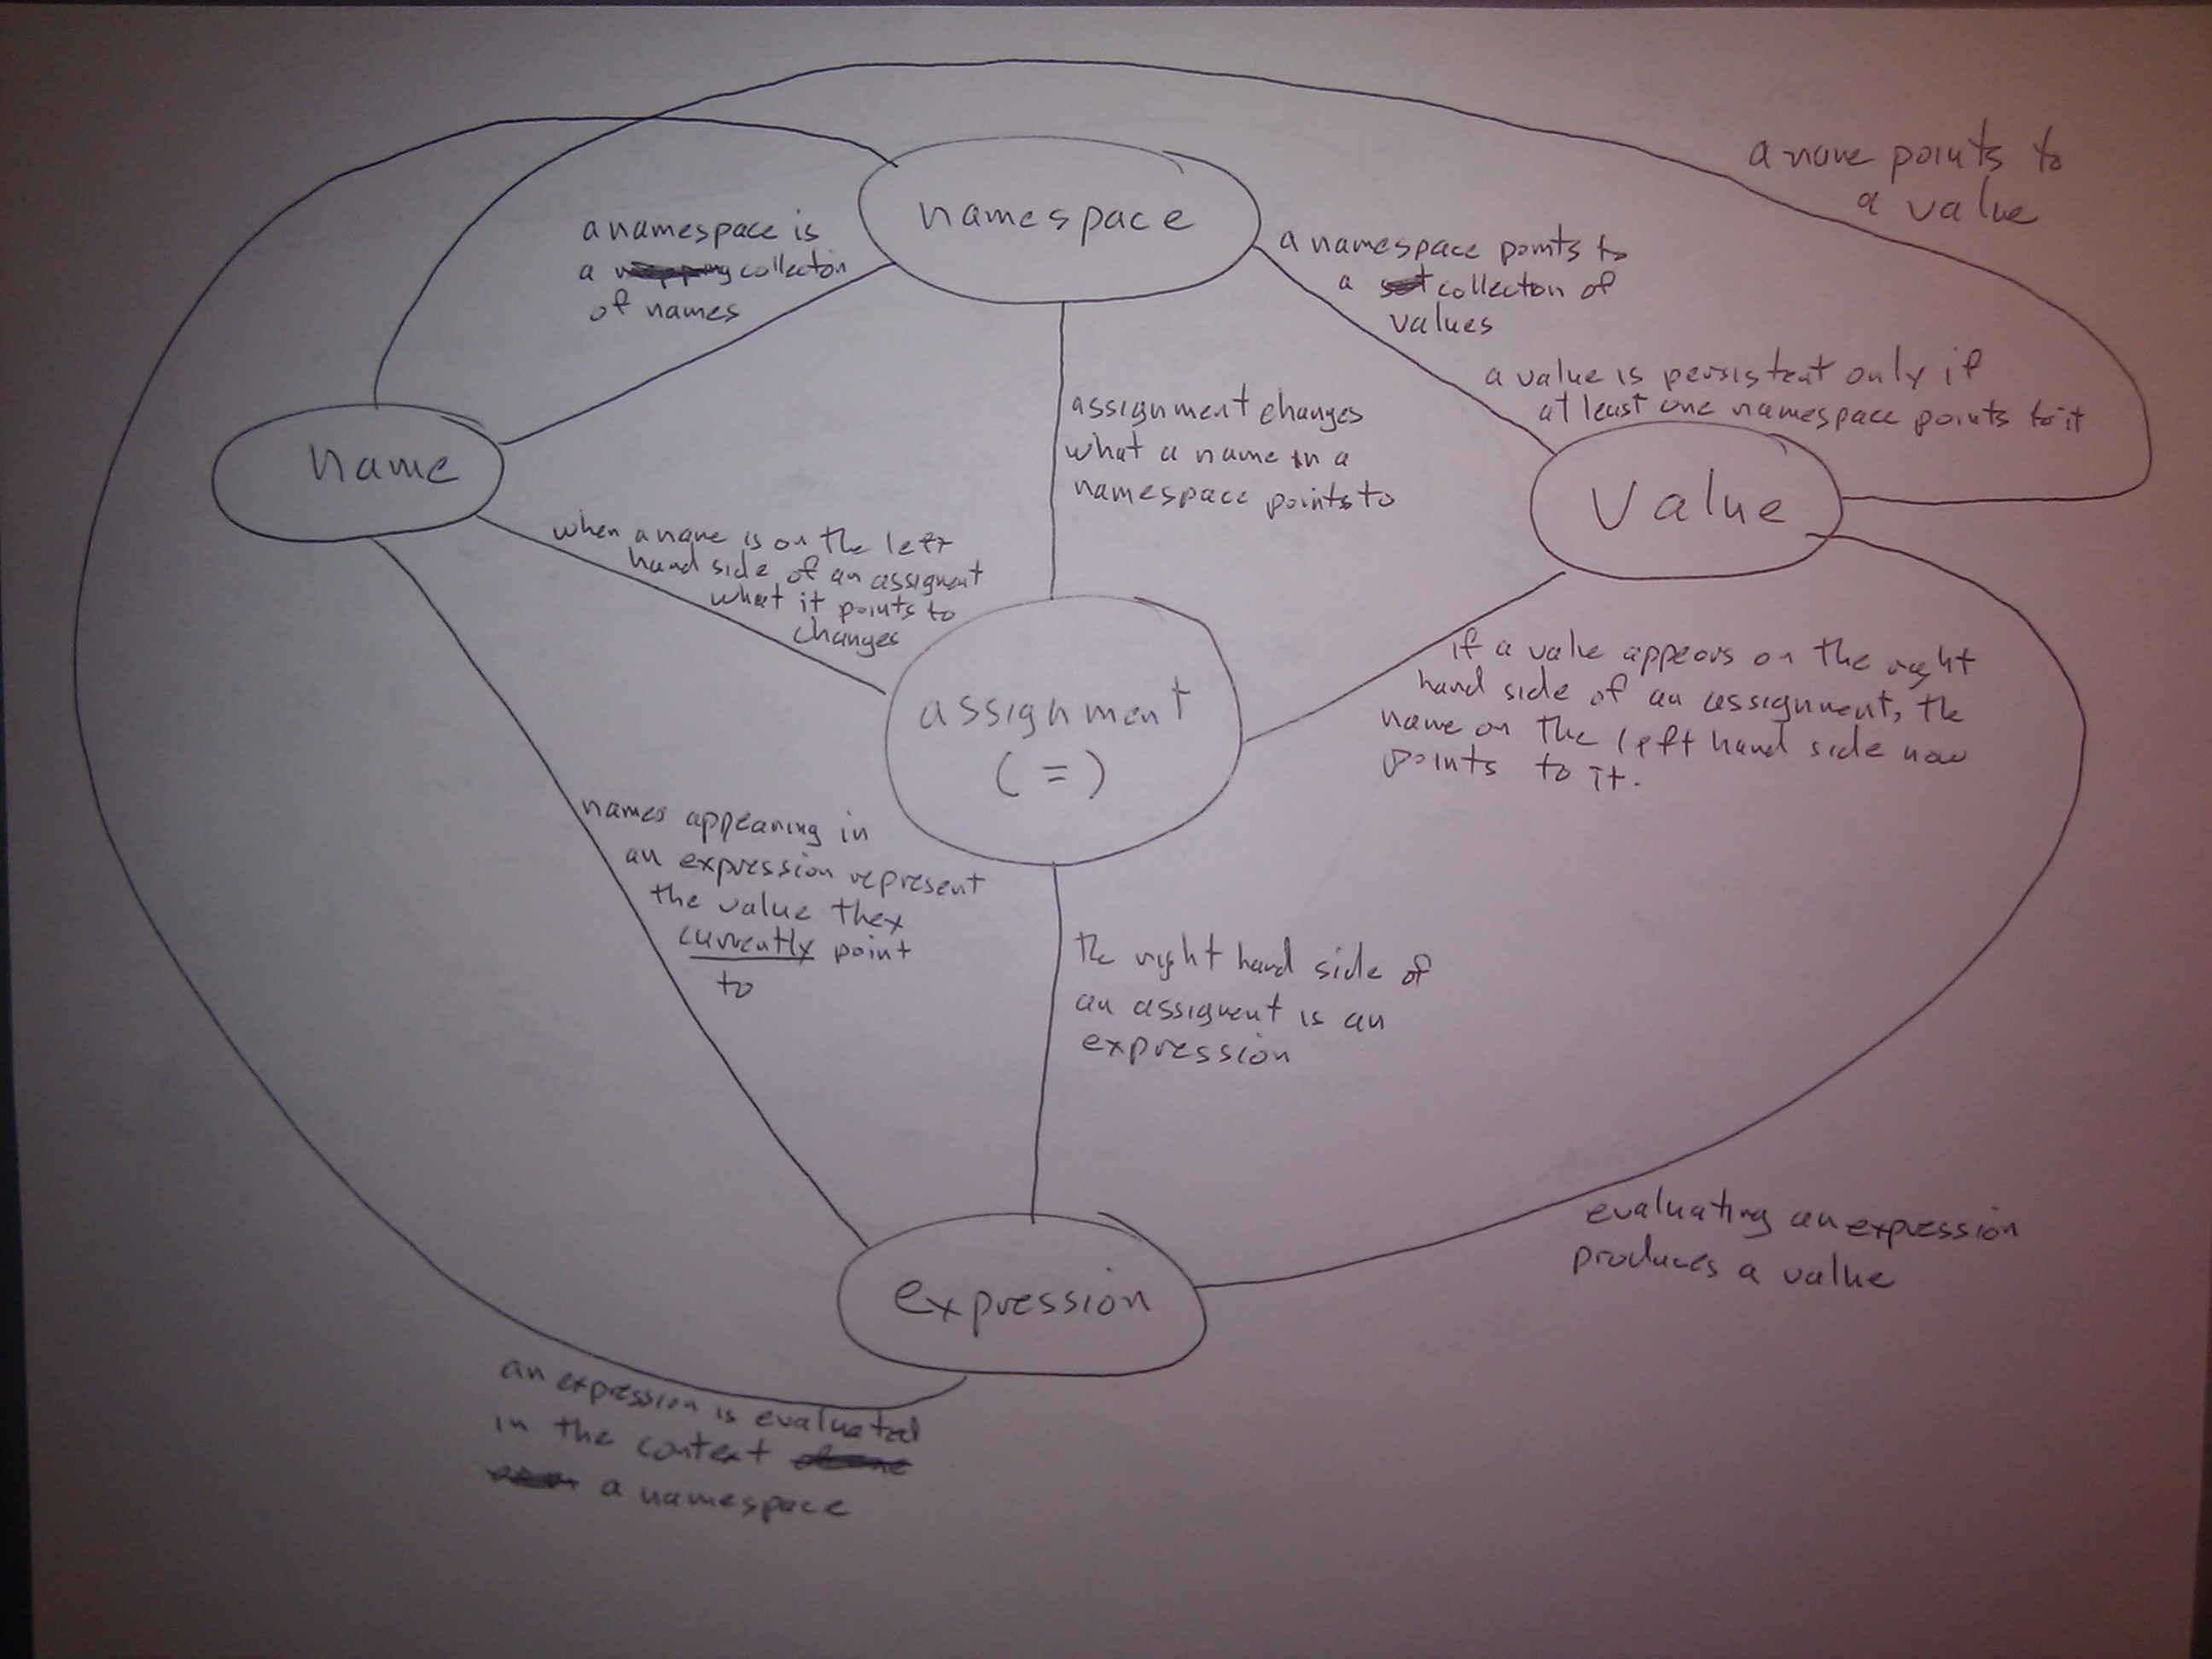 a name points to
a value
namespace
a namespace is
a collection
of names
a namespace points to
a collection of
values
a value is persistent only if
at least one namespace points to it
assignment changes
what a name in a
namespace points to
name
value
when a name is on the left
hand side of an assigment
what it points to
changes
assignment
(=)
if a value appears on the right
hand side of an assignment, the
name on the left hand side now
points to it.
names appearing in
an expression represent
the value they
currently point
to
the right hand side of
an assigment is an
expression
evaluating an expression
produces a value
expression
an expression is evaluated
in the context
a namespace